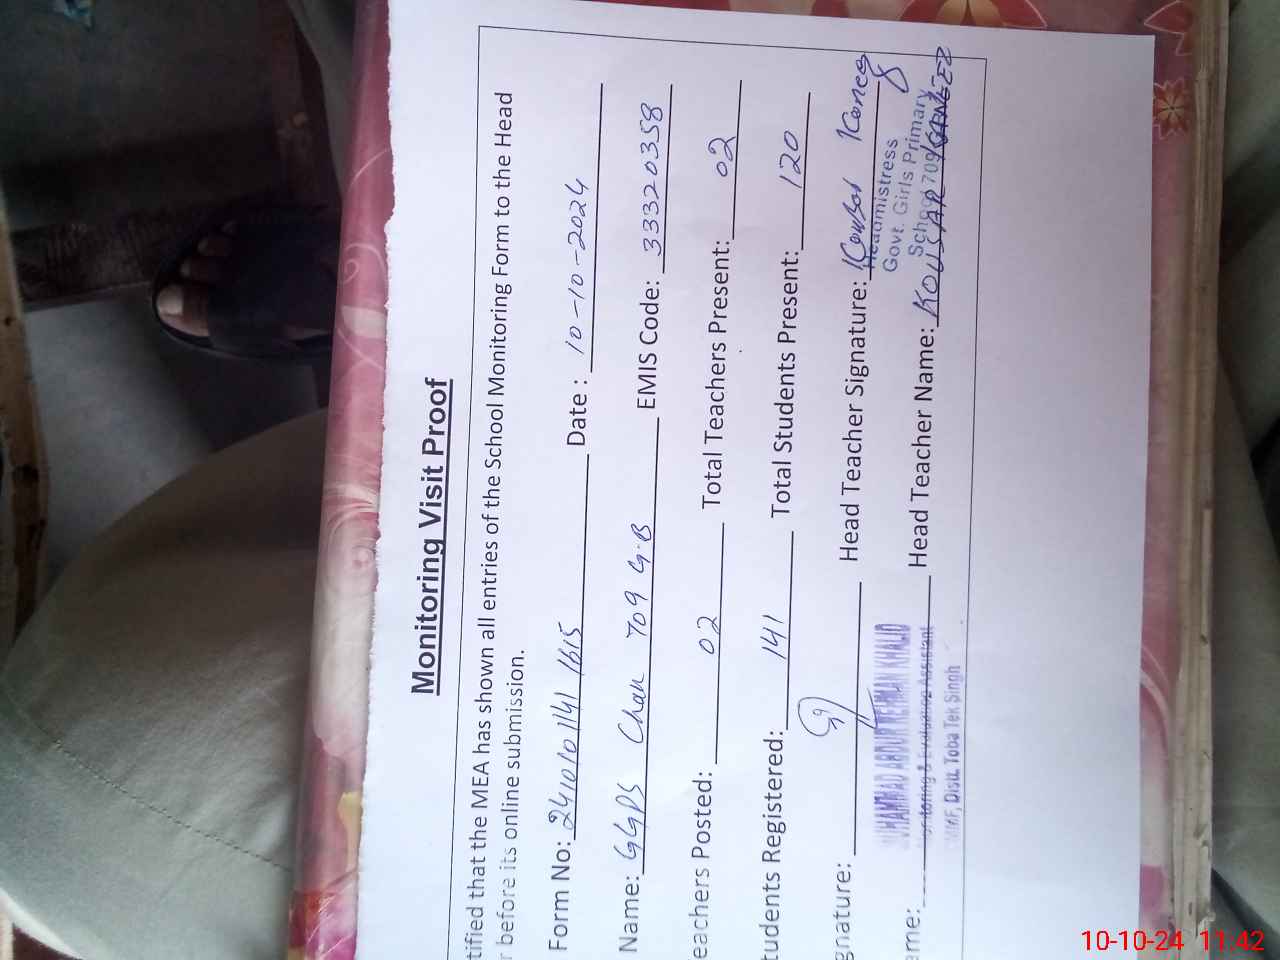 Monitoring Visit Proof
tified that the MEA has shown all entries of the School Monitoring Form to the Head
r before its online submission.
Form No: 241010 1141 1615 Date : 10-10-2024
Name: GGPS Chak 709 G.B EMIS Code: 33320358
eachers Posted: 02 Total Teachers Present: 02
tudents Registered: 141 Total Students Present: 120
gnature: Head Teacher Signature: Kousar
MUHAMMAD ABDUR REHMAN KHALID
Headmistress
Govt. Girls Primary
School 709
ame: Head Teacher Name: KOUSAR
Monitoring & Evaluation Assistant
CMMF, Distt. Toba Tek Singh
10-10-24 11:42